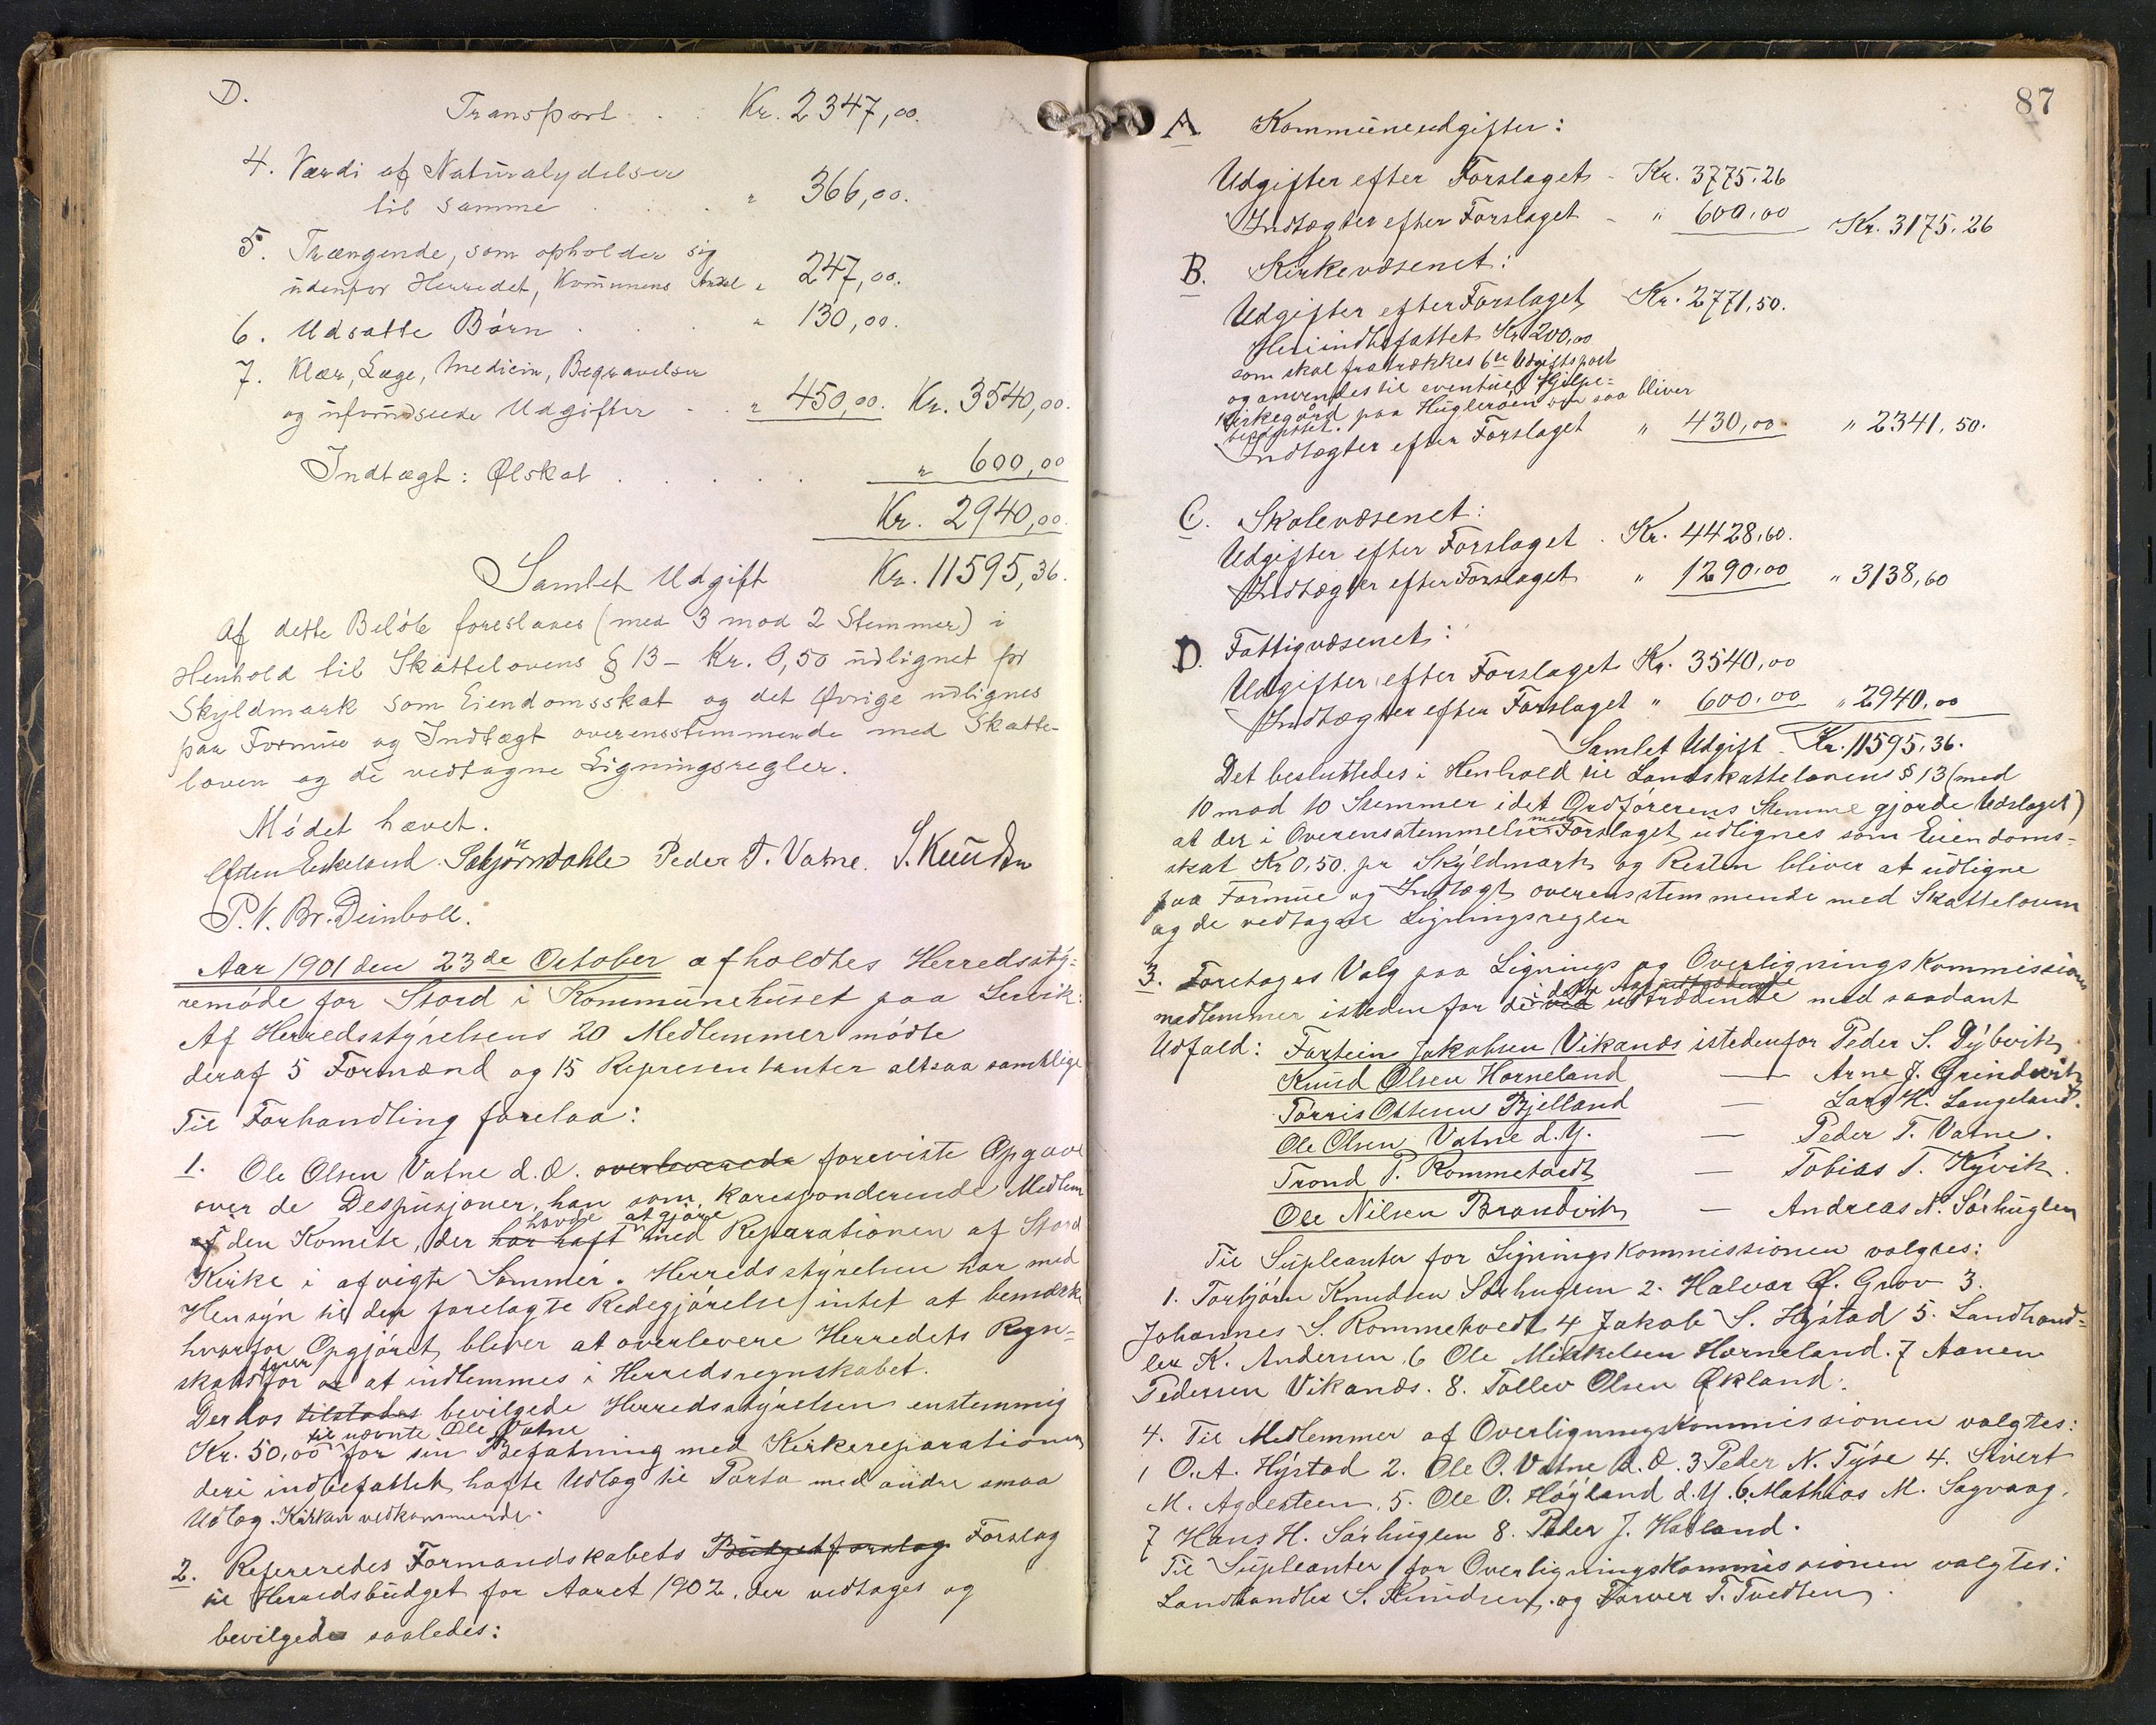 D.
Transport . . Kr. 2347,00.
4. Værdi af Naturalydelser
til samme . . . " 366,00.
5. Trængende, som opholder sig
udenfor Herredet, Kommunens Andel " 247,00.
6. Udsatte Børn . . . " 130,00.
7. Klær, Læge, Medicin, Begravelser
og uforudseede Udgifter . . " 450,00. Kr. 3540,00.
Indtægt: Ølskat . . . . . " 600,00
Kr. 2940,00.
Samlet Udgift Kr. 11595,36.
Af dette Beløb foreslaaes (med 3 mod 2 Stemmer) i
Henhold til Skattelovens § 13 – Kr. 0,50 udlignet pr
Skyldmark som Eiendomsskat og det Øvrige udlignes
paa Formue og Indtægt overensstemmende med Skatte-
loven og de vedtagne Ligningsregler.
Mødet hævet.
Østen Eskeland. Sæbjørndahle Peder T. Vatne. S. Knudsen
P. V. Br. Deinboll.
Aar 1901 den 23de October afholdtes Herredssty-
remøde for Stord i Kommunehuset paa Lervik:
Af Herredsstyrelsens 20 Medlemmer mødte
deraf 5 Formænd og 15 Representanter altsaa samtlige
Til Forhandling forelaa:
1. Ole Olsen Vatne d.Æ. overleverede foreviste Opgave
over de Despusjoner, han som korresponderende Medlem
af den Komite, der har haft havde at gjøre med Reparationen af Stord
Kirke i afvigte Sommer. Herredsstyrelsen har med
Hensyn til den forelagte Redegjørelse intet at bemærke
hvorfor Opgjøret bliver at overlevere Herredets Regn-
skabsfører for at indlemmes i Herredsregnskabet.
Derhos tilstodes bevilgede Herredsstyrelsen enstemmig
til nævnte Ole Vatne
Kr. 50,00 for sin Befatning med Kirkereparationen
deri indbefattet hafte Udlæg til Porto med andre smaa
Udlæg. Kirken vedkommende.
2. Refereredes Formandskabets Budgetforslag Forslag
til Herredsbudget for Aaret 1902, der vedtages og
bevilgedes saaledes:
87
A Kommuneudgifter:
Udgifter efter Forslaget – Kr. 3775.26
Indtægter efter Forslaget – " 600,00 Kr. 3175.26
B. Kirkevæsenet:
Udgifter efter Forslaget Kr. 2771,50.
Heri indbefattet Kr 200,00
som skal fratrækkes 6te Udgiftspost
og anvendes til eventuel Hjælpe-
kirkegård paa Huglerøen om saa bliver
besluttet.
Indtægter efter Forslaget " 430,00. " 2341,50.
C. Skolevæsenet:
Udgifter efter Forslaget . Kr. 4428,60.
Indtægter efter Forslaget " 1290,00 " 3138,60
D. Fattigvæsenet:
Udgifter efter Forslaget Kr. 3540,00
Indtægter efter Forslaget " 600,00 " 2940,00
Samlet Udgift Kr. 11595,36.
Det besluttedes i Henhold til Landskattelovens § 13 (med
10 mod 10 Stemmer idet Ordførerens Stemme gjorde Udslaget)
at der i Overensstemmelse med Forslaget udlignes som Eiendoms-
skat Kr 0,50. pr Skyldmark og Resten bliver at udligne
paa Formue og Indtægt overensstemmende med Skatteloven
og de vedtagne Ligningsregler
3. Foretages Valg paa Lignings og Overlignings Kommissions
medlemmer istedenfor de ved i dette Aar udtrædende med saadant
Udfald: Fartein Jakobsen Vikanes istedenfor Peder S. Dybvik
Knud Olsen Horneland — Arne J. Grindvik
Torris Ottesen Bjelland — Lars H. Langeland.
Ole Olsen Vatne d.Y. — Peder T. Vatne.
Trond P. Rommetvedt — Tobias T. Kyvik.
Ole Nilsen Brandvik — Andreas N. Sørhuglen
Til Supleanter for Ligningskommissionen valgtes:
1. Torbjørn Knudsen Sørhuglen 2. Halvor Ø. Grov 3.
Johannes S. Rommetvedt 4 Jakob S. Hystad 5. Landhand-
ler K. Andersen 6 Ole Mikkelsen Horneland. 7 Aanen
Pedersen Vikanes. 8. Tollev Olsen Økland.
4. Til Medlemmer af Overligningskommissionen valgtes:
1 O. A. Hystad 2. Ole O. Vatne d. Æ. 3 Peder N. Tyse 4. Sivert
M. Agdesteen. 5. Ole O. Høyland d. Y. 6. Mathias M. Sagvaag.
7 Hans H. Sørhuglen 8. Peder J. Hatland.
Til Supleanter for Overligningskommissionen valgtes:
Landhandler S. Knudsen. og Farver T. Tvedten.